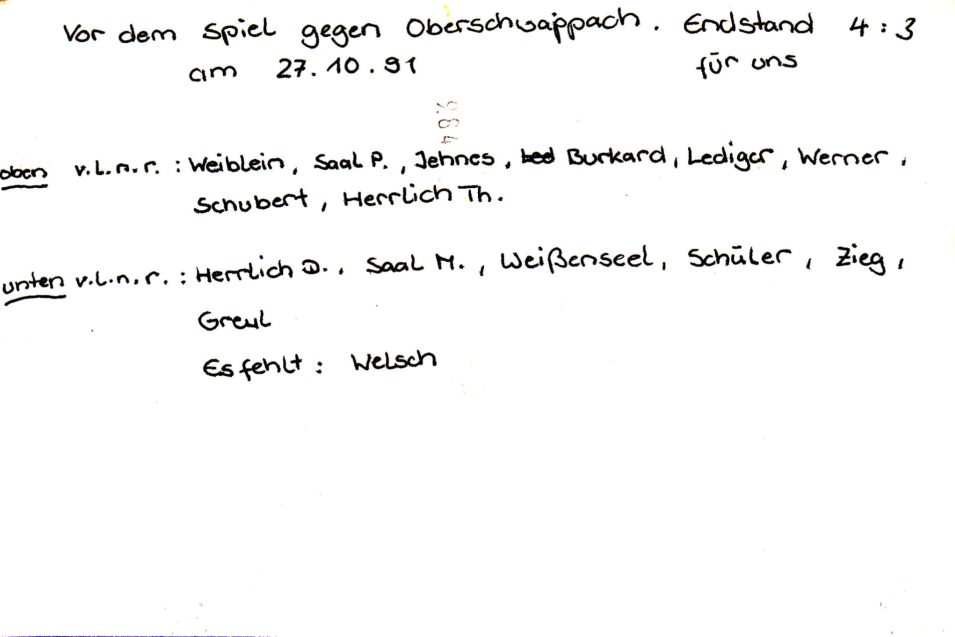 Vor dem Spiel gegen Oberschwappach. Endstand 4:3
am 27.10.91 für uns
oben v.l.n.r.: Weiblein, Saal P., Jehnes, Led Burkard, Lediger, Werner,
Schubert, Herrlich Th.
unten v.l.n.r.: Herrlich D., Saal M., Weißenseel, Schüler, Zieg,
Greul
Es fehlt: Welsch